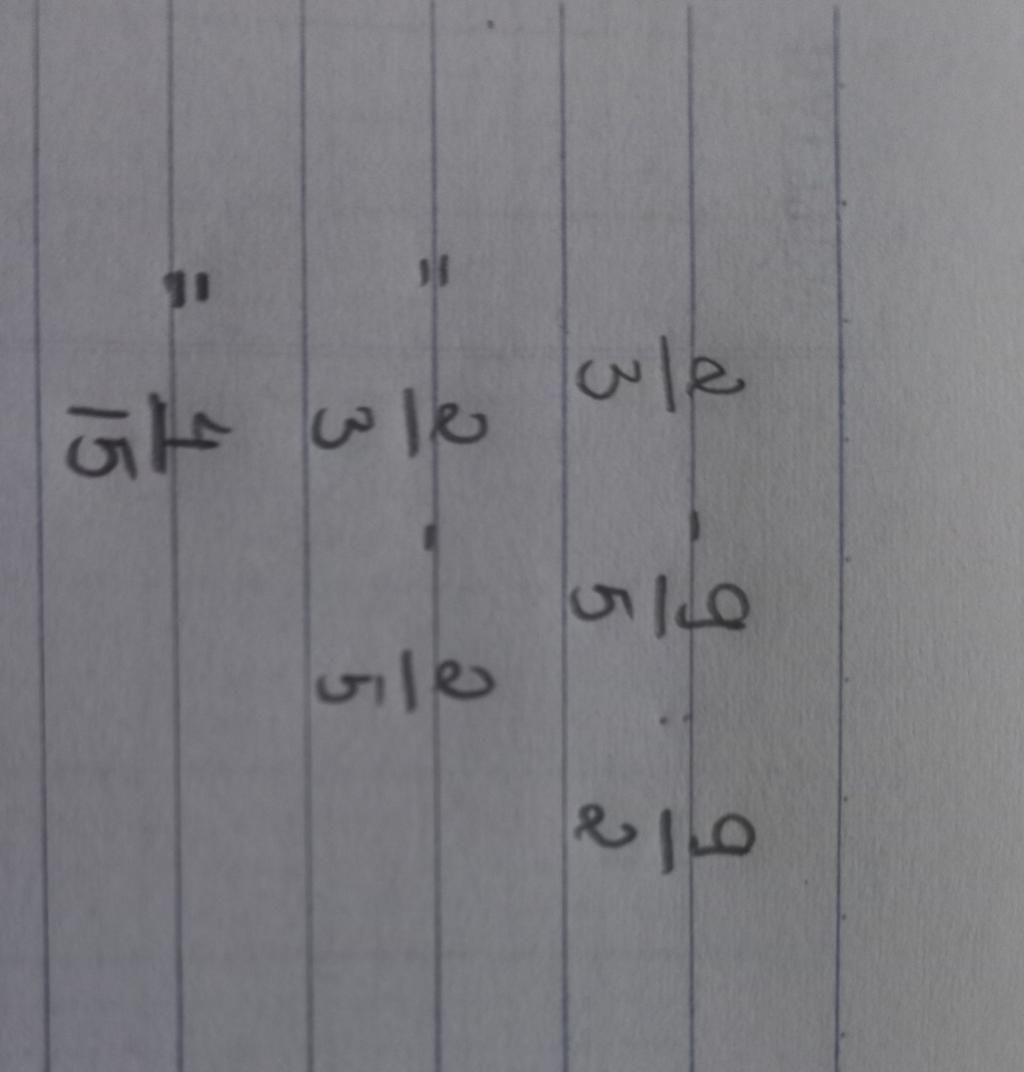 2/3 - 9/5 : 9/2
= 2/3 - 2/5
= 4/15